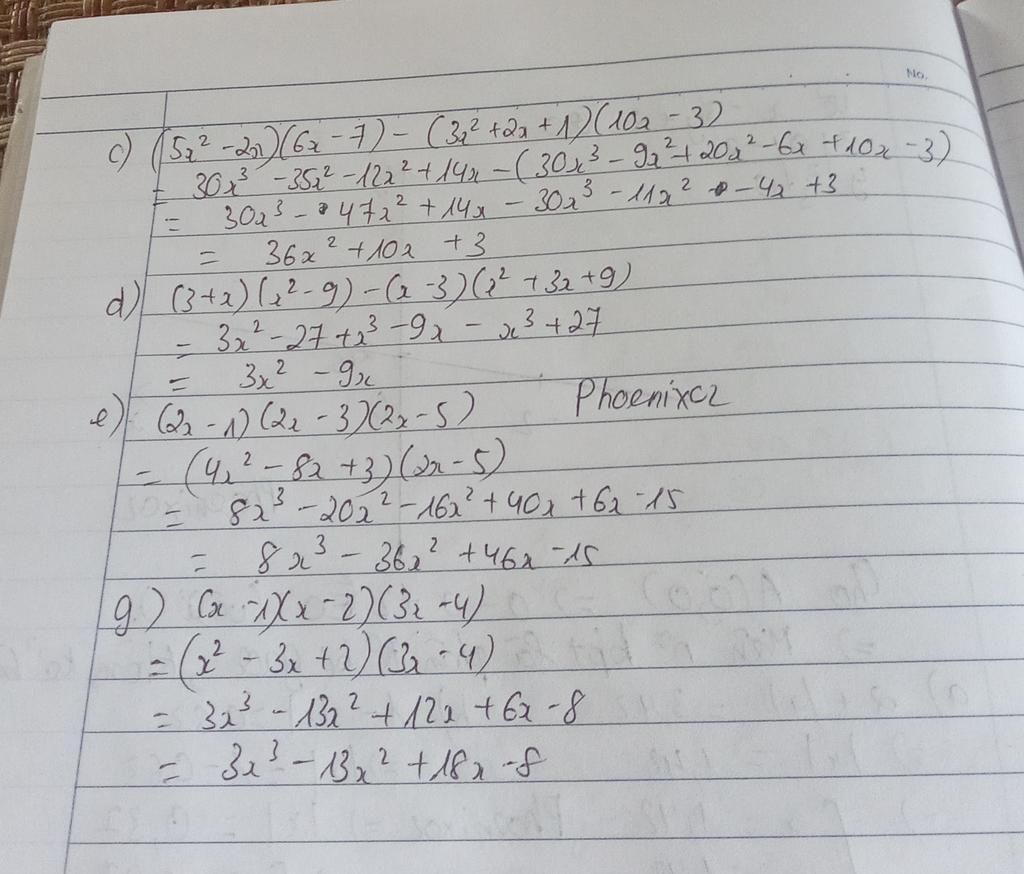 No.
c) (5x² - 2x)(6x - 7) - (3x² + 2x + 1)(10x - 3)
= 30x³ - 35x² - 12x² + 14x - (30x³ - 9x² + 20x² - 6x + 10x - 3)
= 30x³ - 47x² + 14x - 30x³ - 11x² - 4x + 3
= 36x² + 10x + 3
d) (3 + x)(x² - 9) - (x - 3)(x² + 3x + 9)
= 3x² - 27 + x³ - 9x - x³ + 27
= 3x² - 9x
e) (2x - 1)(2x - 3)(2x - 5) Phoenixcz
= (4x² - 8x + 3)(2x - 5)
= 8x³ - 20x² - 16x² + 40x + 6x - 15
= 8x³ - 36x² + 46x - 15
g) (x - 1)(x - 2)(3x - 4)
= (x² - 3x + 2)(3x - 4)
= 3x³ - 13x² + 12x + 6x - 8
= 3x³ - 13x² + 18x - 8